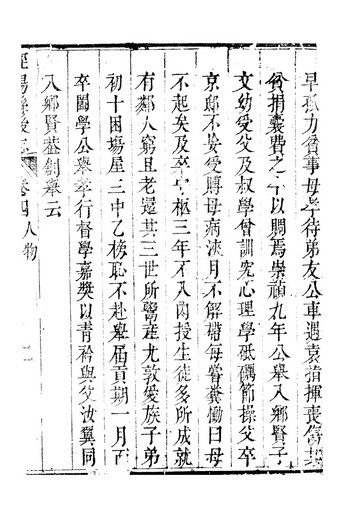 早孤力貧事母孝待弟友公車遇袁指揮喪
貧捐囊費之半以賙焉崇禎九年公舉入鄉賢子
文幼受父及叔學曾訓究心理學砥礪節操父卒
京邸不妄受賻母病浹月不解帶每嘗糞慟曰母
不起矣及卒守柩三年不入內授生徒多所成就
有鄰人窮且老還其三世所鬻產尤敦愛族子弟
初十困場屋三中乙榜恥不赴舉屆貢期一月而
卒闔學公舉孝行督學嘉獎以青衿與父汝翼同
入鄉賢葢創舉云
涇陽縣後志
卷四人物